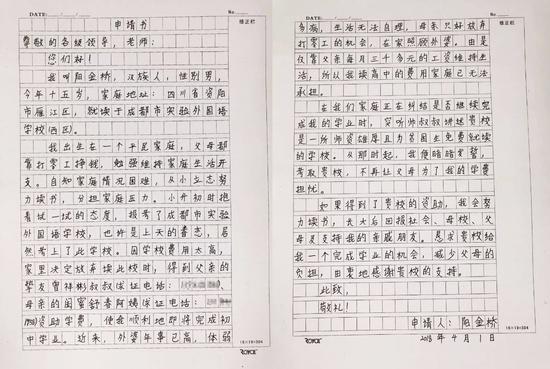 DATE: / / No
修正栏
申请书
尊敬的各级领导，老师：
您们好！
我叫阳金桥，汉族人，性别男，
今年十五岁，家庭地址：四川省资阳
市雁江区，就读于成都市实验外国语
学校(西区)。
我出生在一个平民家庭，父母都
靠打零工挣钱，勉强维持家庭生活开
支。自知家庭情况困难，从小立志努
力读书，分担家庭压力。小升初时抱
着试一试的态度，报考了成都市实验
外国语学校，也许是上天的眷恋，居
然考上了此学校。因学校费用太高，
家里决定放弃读此校时，得到父亲的
挚友曾祥彬叔叔(证电话：
母亲的闺蜜舒春阿姨(证电话：
资助学费，使我顺利地即将完成初
中学业。近来，外婆年事已高，体弱
ROYCE 16×19=304
DATE: / / No
修正栏
多病，生活无法自理，母亲只好放弃
打零工的机会，在家照顾外婆。由是
仅靠父亲每月三千多元的工资维持生
活，所以我读高中的费用家庭已无法
承担。
在我们家庭正在纠结是否继续完
成我的学业时，突听师叔叔讲述贵校
是一所师资雄厚且为贫困生免费就读
的学校。从那时起，我便暗暗发誓，
考取贵校，不再让父母为了我的学费
担忧。
如果得到了贵校的资助，我会努
力读书，长大后回报社会、母校、父
母及支持我的亲戚朋友。恳求贵校给
我一个完成学业的机会，减少父母的
负担，由衷地感谢贵校的支持。
此致，
敬礼！
申请人：阳金桥
2018年4月1日
ROYCE 16×19=304